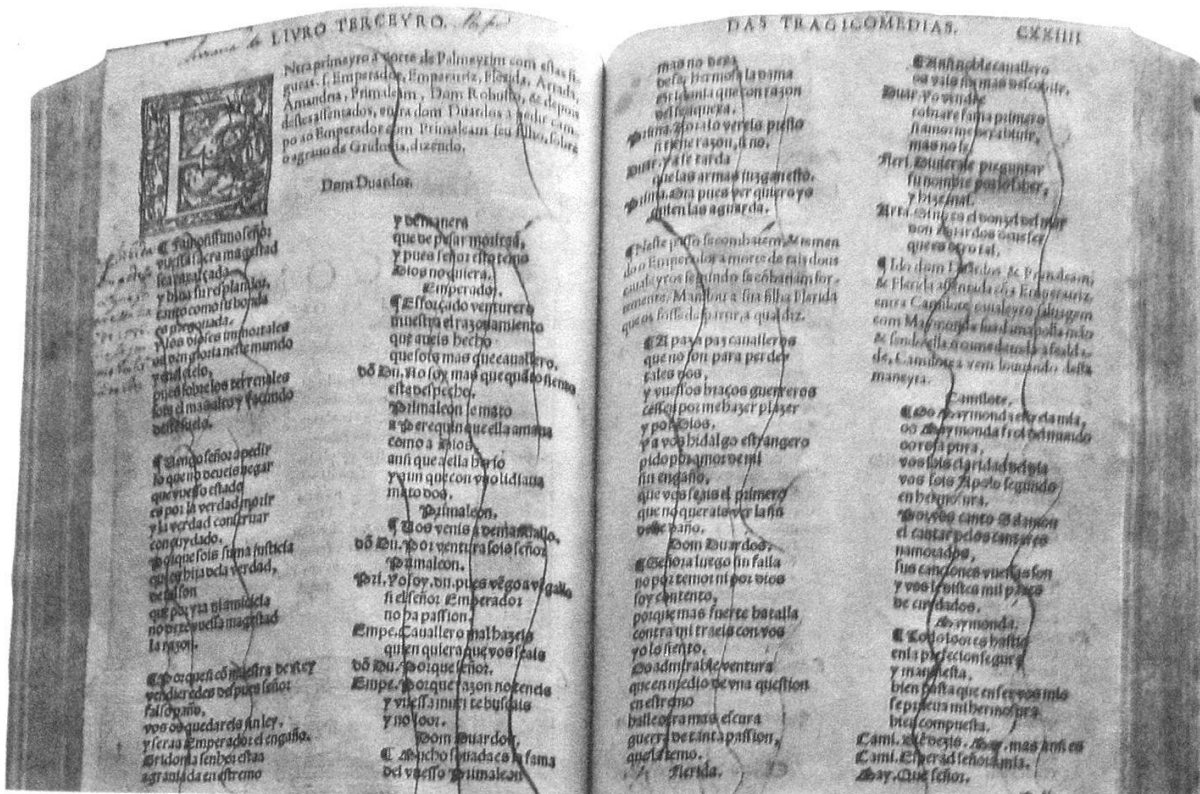 LIVRO TERCEYRO.
Ntra primeyro a corte de Palmeyrim com estas fi-
guras. s. Emperador, Emperatriz, Flerida, Artada,
Amandria, Primaleam, Dom Robusto, & depois
destes assentados, entra dom Duardos a pedir cam-
po ao Emperador com Primaleam seu filho, sobre
o agrauo de Gridonia, dizendo.
Dom Duardos.
¶ Famosissimo señor
vuestra sacra magestad
sea enxalçada
y biua su resplandor,
tanto como su bondad
es pregonada.
y los dioses immortales
os den gloria neste mundo
y en el cielo,
pues sobre los terrenales
sois el mas alto y facundo
deste suelo.
¶ Vengo señor a pedir
lo que no deueis negar
que vuesso estado
es por la verdad morir
y la verdad conseruar
con cuydado.
Porque sois suma justicia
que es hija dela verdad,
de tal son
que por yra ni amicicia
no dexe vuessa magestad
la razon.
¶ Porque si cõ muestra de Rey
vendieredes despues señor
falso paño,
vos os quedareis sin ley,
y sera Emperador el engaño.
Gridonia senhor estas
agrauiada en estremo
y de manera
que de pesar
y pues señor
Dios no quiera.
Emperador.
¶ Efforçado venturero
muestra el razonamiento
que aueis hecho
que sois mas que cauallero.
dõ Du. No soy mas que quãto siento
este despecho.
Primaleon le mato
a Perequin que ella amaua
como a Dios
ansi que a ella herio
y aun que con vno lidiaua
mato dos.
Primaleon.
¶ Vos venis a demandallo.
dõ Du. Por ventura sois señor
Primaleon.
Pri. Yo soy.
si el señor Emperador
no ha passion.
Empe. Cauallero mal hazeis
quien quiera que vos seais
dõ Du. Porque señor.
Empe. Porque razon no teneis
y vuessa muerte buscais
y no loor.
Dom Duardos.
¶ Mucho sonada es la fama
del vuesso Primaleon
DAS TRAGICOMEDIAS. CXXIIII
mas no dexa
de ser hermosa la dama
Gridonia que con razon
del se quexa.
Prima. No rato vereis presto
si tiene razon, si no.
Duar. y a se tarda
que las armas juzgan esto.
Prima. Ora pues ver quiero yo
quien las aguarda.
¶ Neste passo se combatem, & temen
do o Emperador a morte de tais dous
caualeyros segundo se cõbatiam for-
temente, Mandou a sua filha Flerida
que os fosse departir, a qual diz.
¶ A paz a paz caualleros
que no son para perder
tales dos,
y vuessos braços guerreros
cessen por me hazer plazer
y por Dios.
y a vos hidalgo estrangero
pido por amor de mi
sin engaño,
que vos seais el primero
que no querais ver la fin
deste daño.
Dom Duardos.
¶ Señora luego sin falla
no por temor ni por vicios
soy contento,
porque mas fuerte batalla
contra mi traeis con vos
yo lo siento.
Oo admirable ventura
que en medio de vna question
en estremo
halle otra mas escura
guerra de tanta passion,
que la temo.
Flerida.
¶ An noble cauallero
Duar. Yo vendre
cobrare fama primero
si amor me ayudare,
mas no se.
Fleri. Duierale preguntar
su nombre por lo saber,
y hize mal.
Arta.
don Duardos deue ser
que es otro tal.
¶ Ido dom Duardos & Primaleam,
& Flerida assentada cõ a Emperatriz,
entra Camilote caualeyro saluagem
com Maymonda sua dama pola mão
& sendo ella o cume de toda a fealda-
de, Camilote a vem louuando desta
maneyra.
Camilote.
¶ Oo Maymonda estrela mia,
oo Maymonda frol del mundo
oo rosa pura,
vos sois claridad del dia
vos sois Apolo segundo
en hermosura.
Por vos canto Salamon
el cantar delos cantares
namorados,
sus canciones vuessas son
y vos le distes mil pares
de cuydados.
Maymonda.
¶ Todo loor es hastio
en la perfecion segura
y manifiesta,
bien basta que en ser vos mio
se publica mi hermosura
bien compuesta.
Cami. may. mas ansi es
Cami. Esperad señora mia.
May. Que señor.